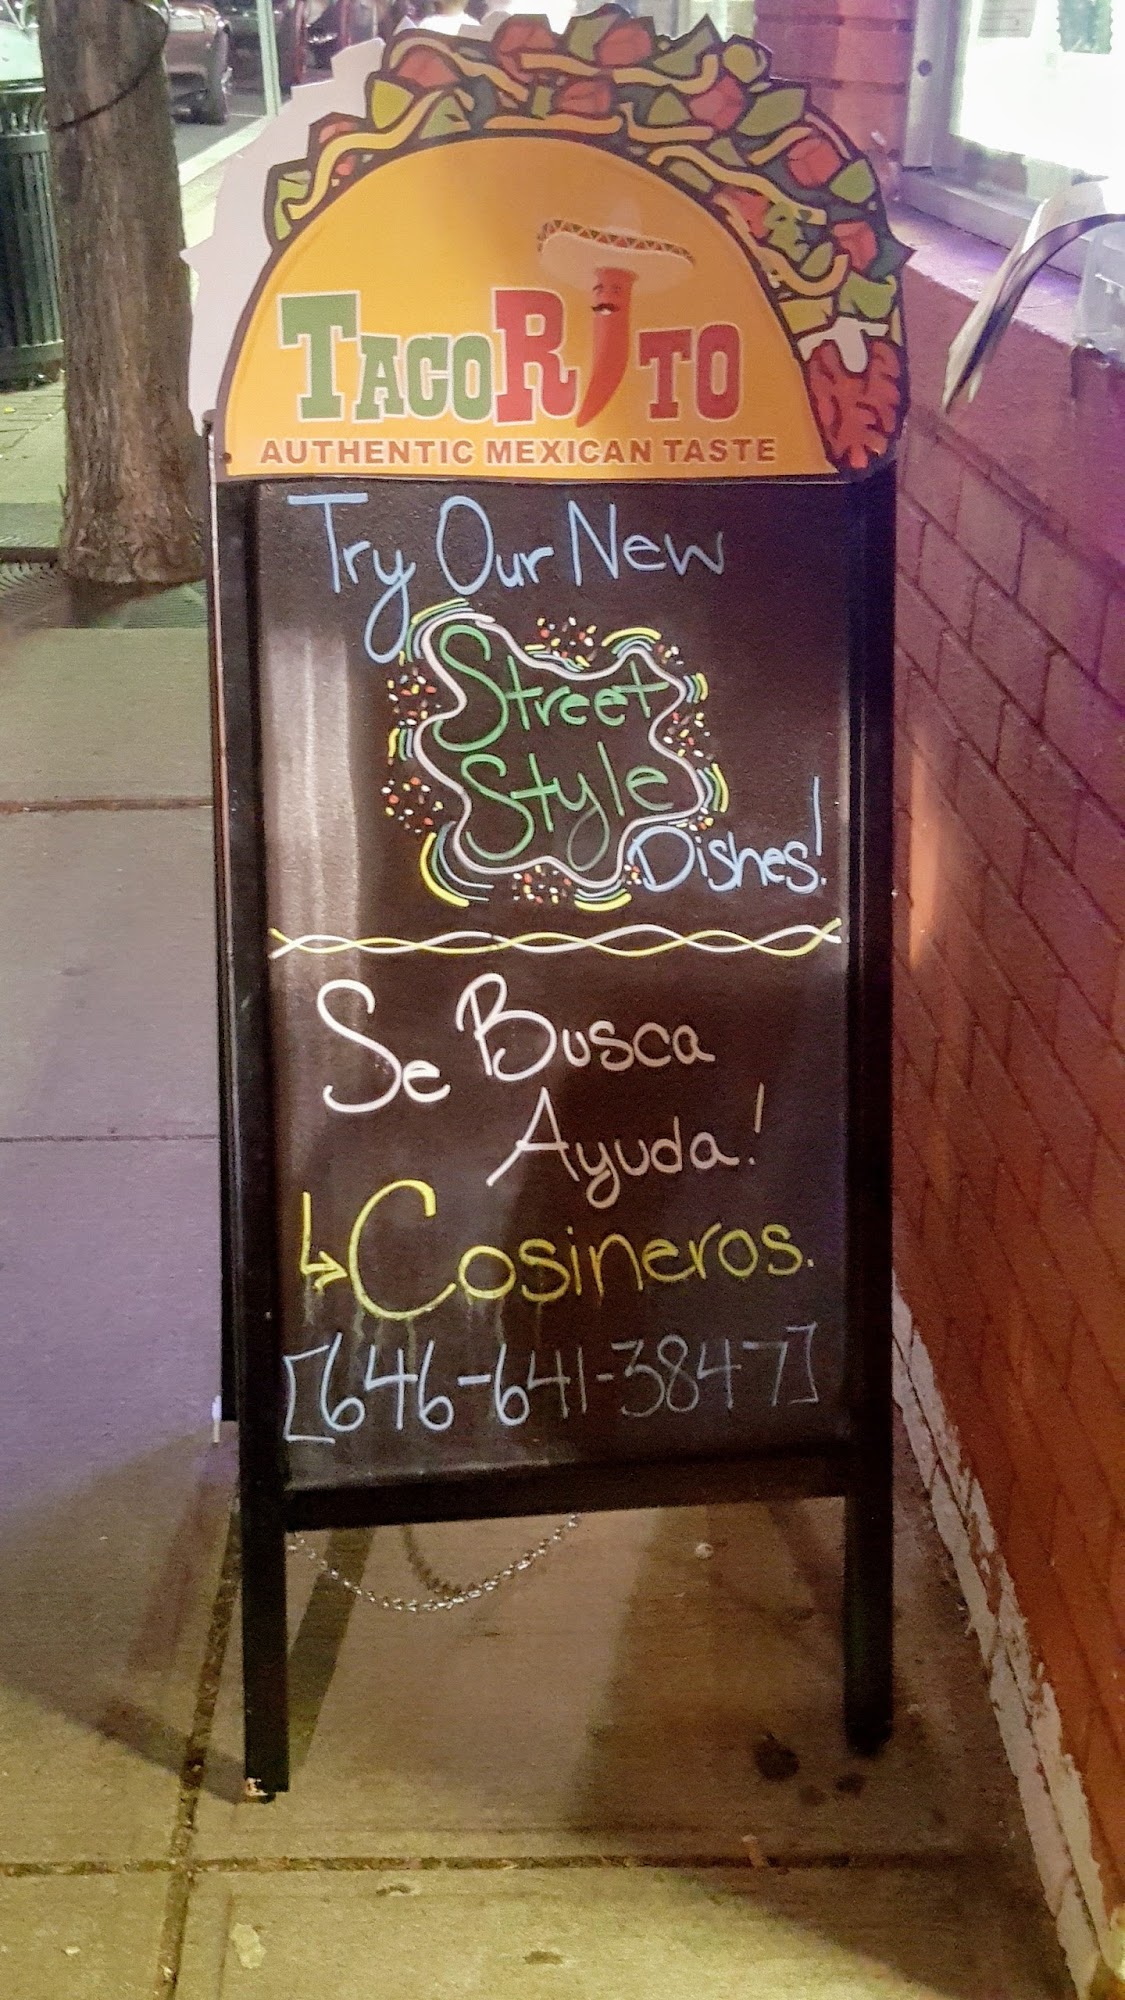 TACORITO
AUTHENTIC MEXICAN TASTE
Try Our New
Street
Style
Dishes!
Se Busca
Ayuda!
Cosineros.
[646-641-3847]